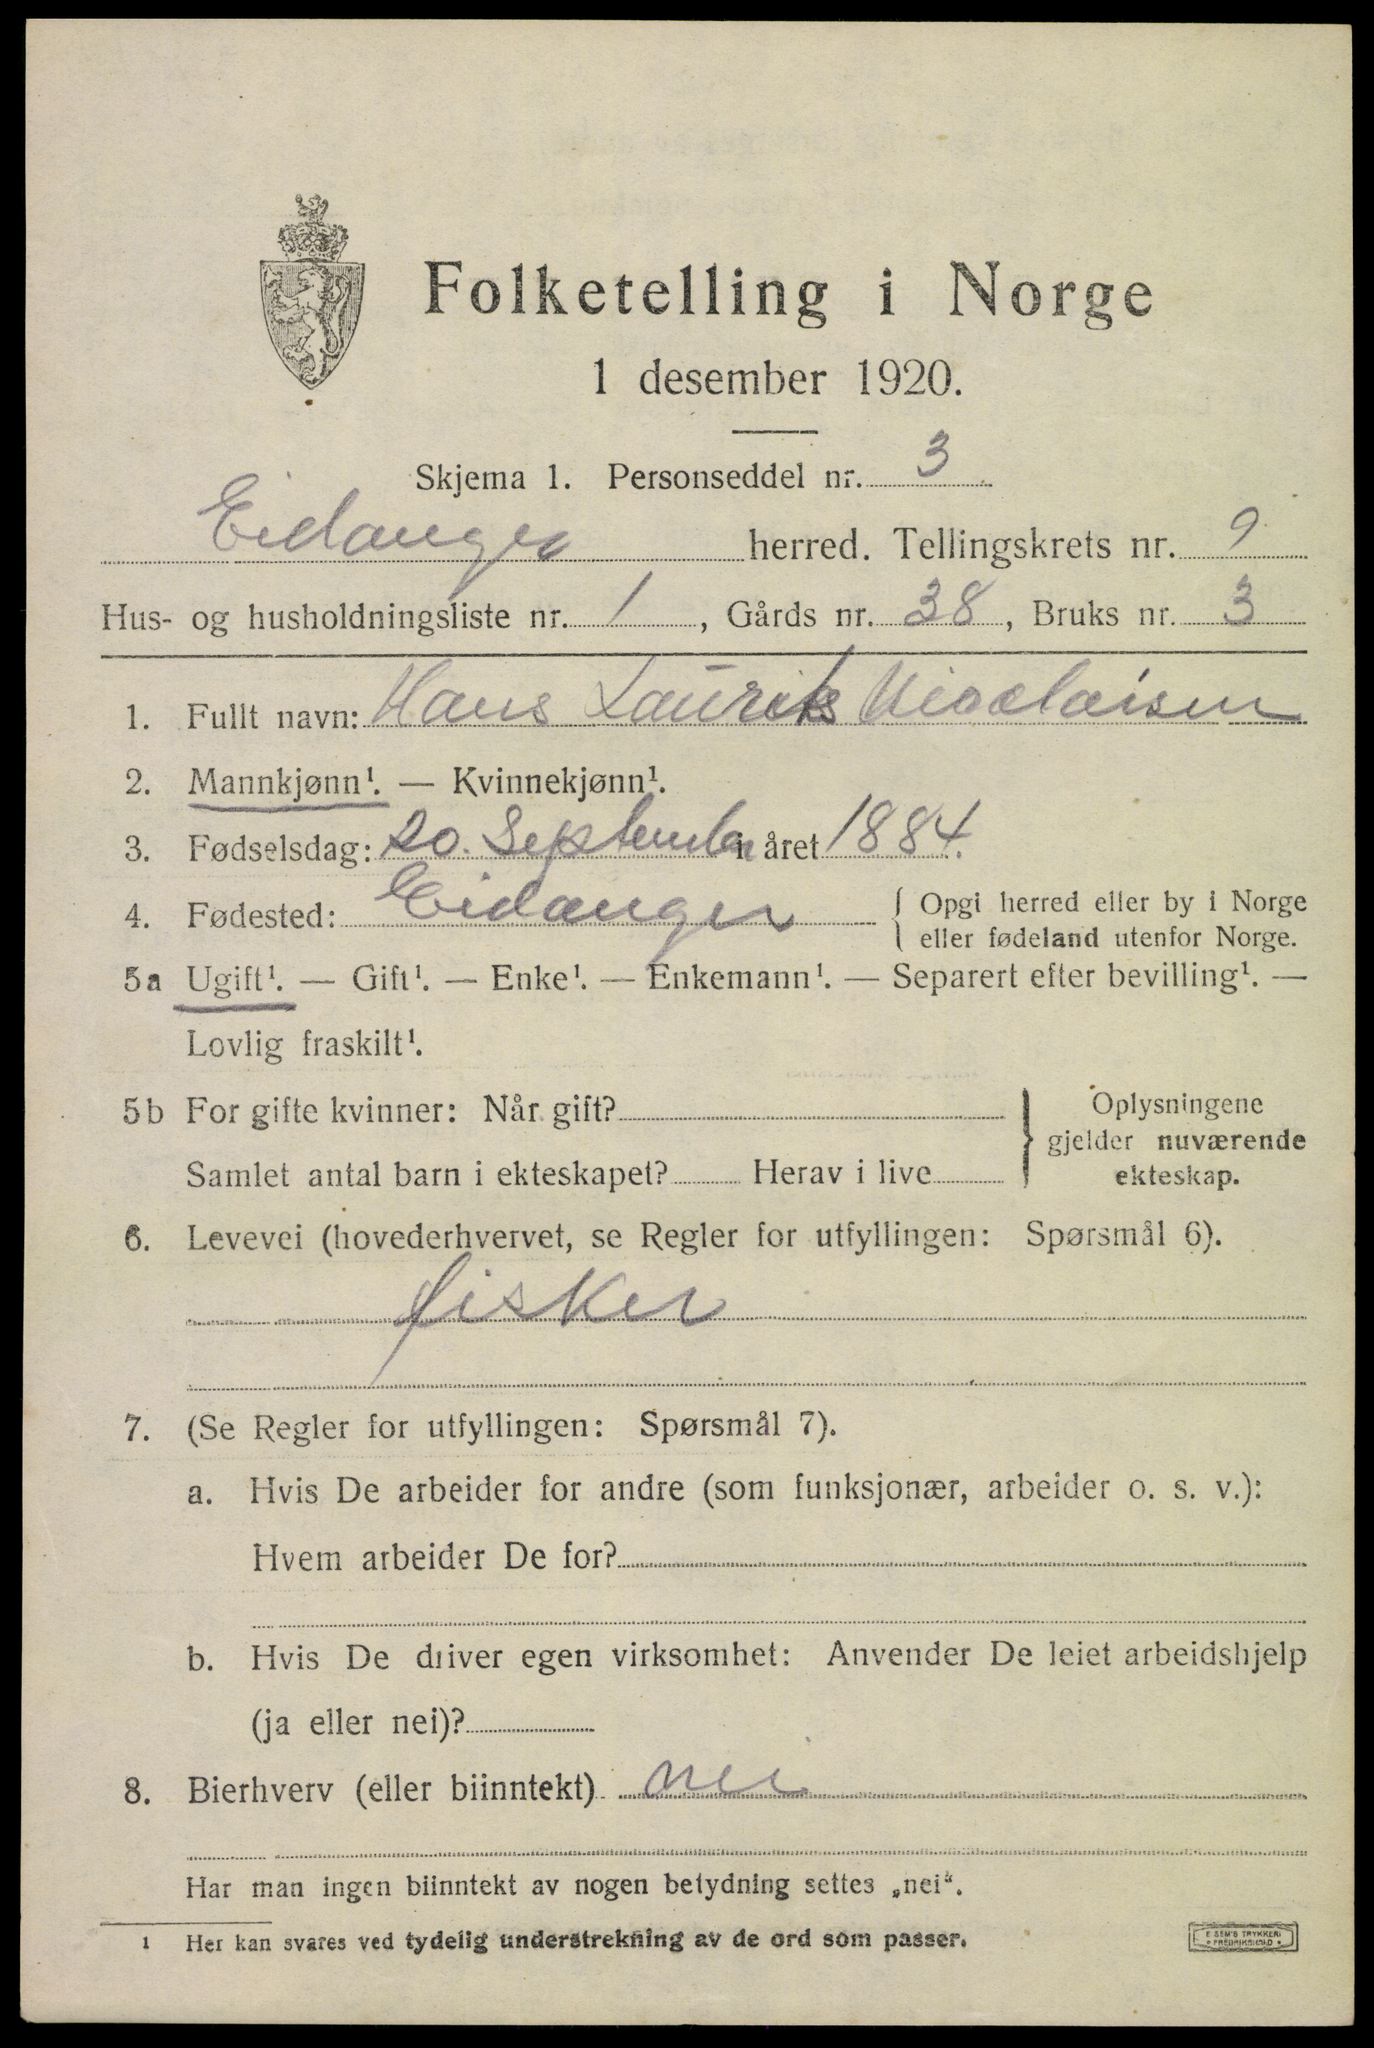 Folketelling i Norge
1 desember 1920.
Skjema 1. Personseddel nr. 3
Eidanger herred. Tellingskrets nr. 9
Hus- og husholdningsliste nr. 1, Gårds nr. 38, Bruks nr. 3
1. Fullt navn: Hans Laurits Nicolaisen
2. Mannkjønn¹. — Kvinnekjønn¹.
3. Fødselsdag: 20. September i året 1884.
4. Fødested: Eidanger { Opgi herred eller by i Norge
eller fødeland utenfor Norge.
5a Ugift¹. — Gift¹. — Enke¹. — Enkemann¹. — Separert efter bevilling¹. —
Lovlig fraskilt¹.
5b For gifte kvinner: Når gift? } Oplysningene
gjelder nuværende
Samlet antal barn i ekteskapet? Herav i live ekteskap.
6. Levevei (hovederhvervet, se Regler for utfyllingen: Spørsmål 6).
fisker
7. (Se Regler for utfyllingen: Spørsmål 7).
a. Hvis De arbeider for andre (som funksjonær, arbeider o. s. v.):
Hvem arbeider De for?
b. Hvis De driver egen virksomhet: Anvender De leiet arbeidshjelp
(ja eller nei)?
8. Bierhverv (eller biinntekt) nei
Har man ingen biinntekt av nogen betydning settes „nei“.
1 Her kan svares ved tydelig understrekning av de ord som passer.
E SEM'S TRYKKERI
• FREDRIKSHALD •